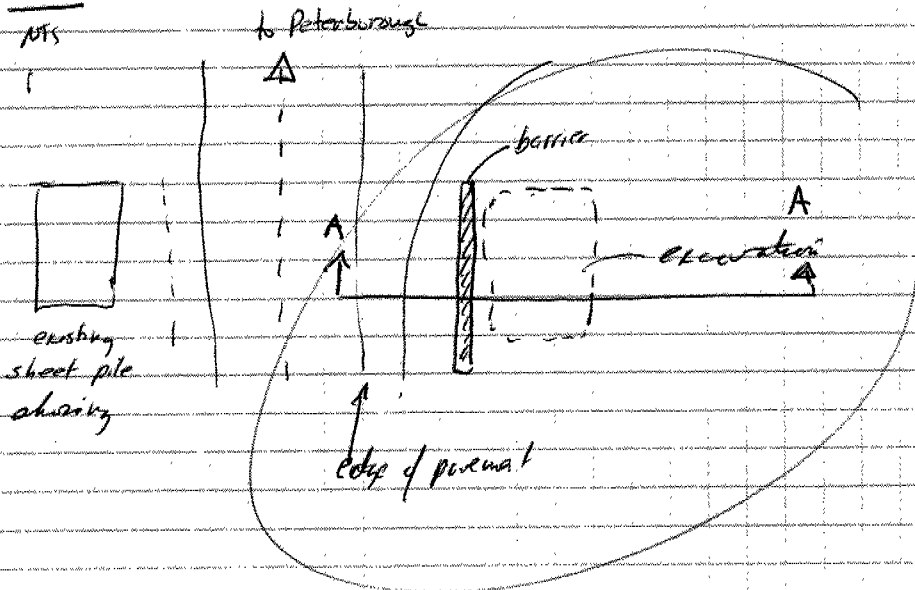 NTS
to Peterborough
barrier
A
A
excavation
existing
sheet pile
shoring
edge of pavement